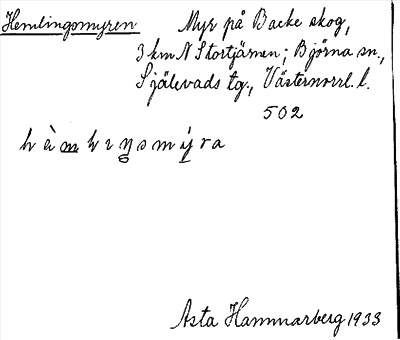 Hemlingsmyren Myr på Backe skog,
3 km N Stortjärnen; Björna sn.,
Själevads tg., Västernorrl. l.
502
Asta Hammarberg 1933